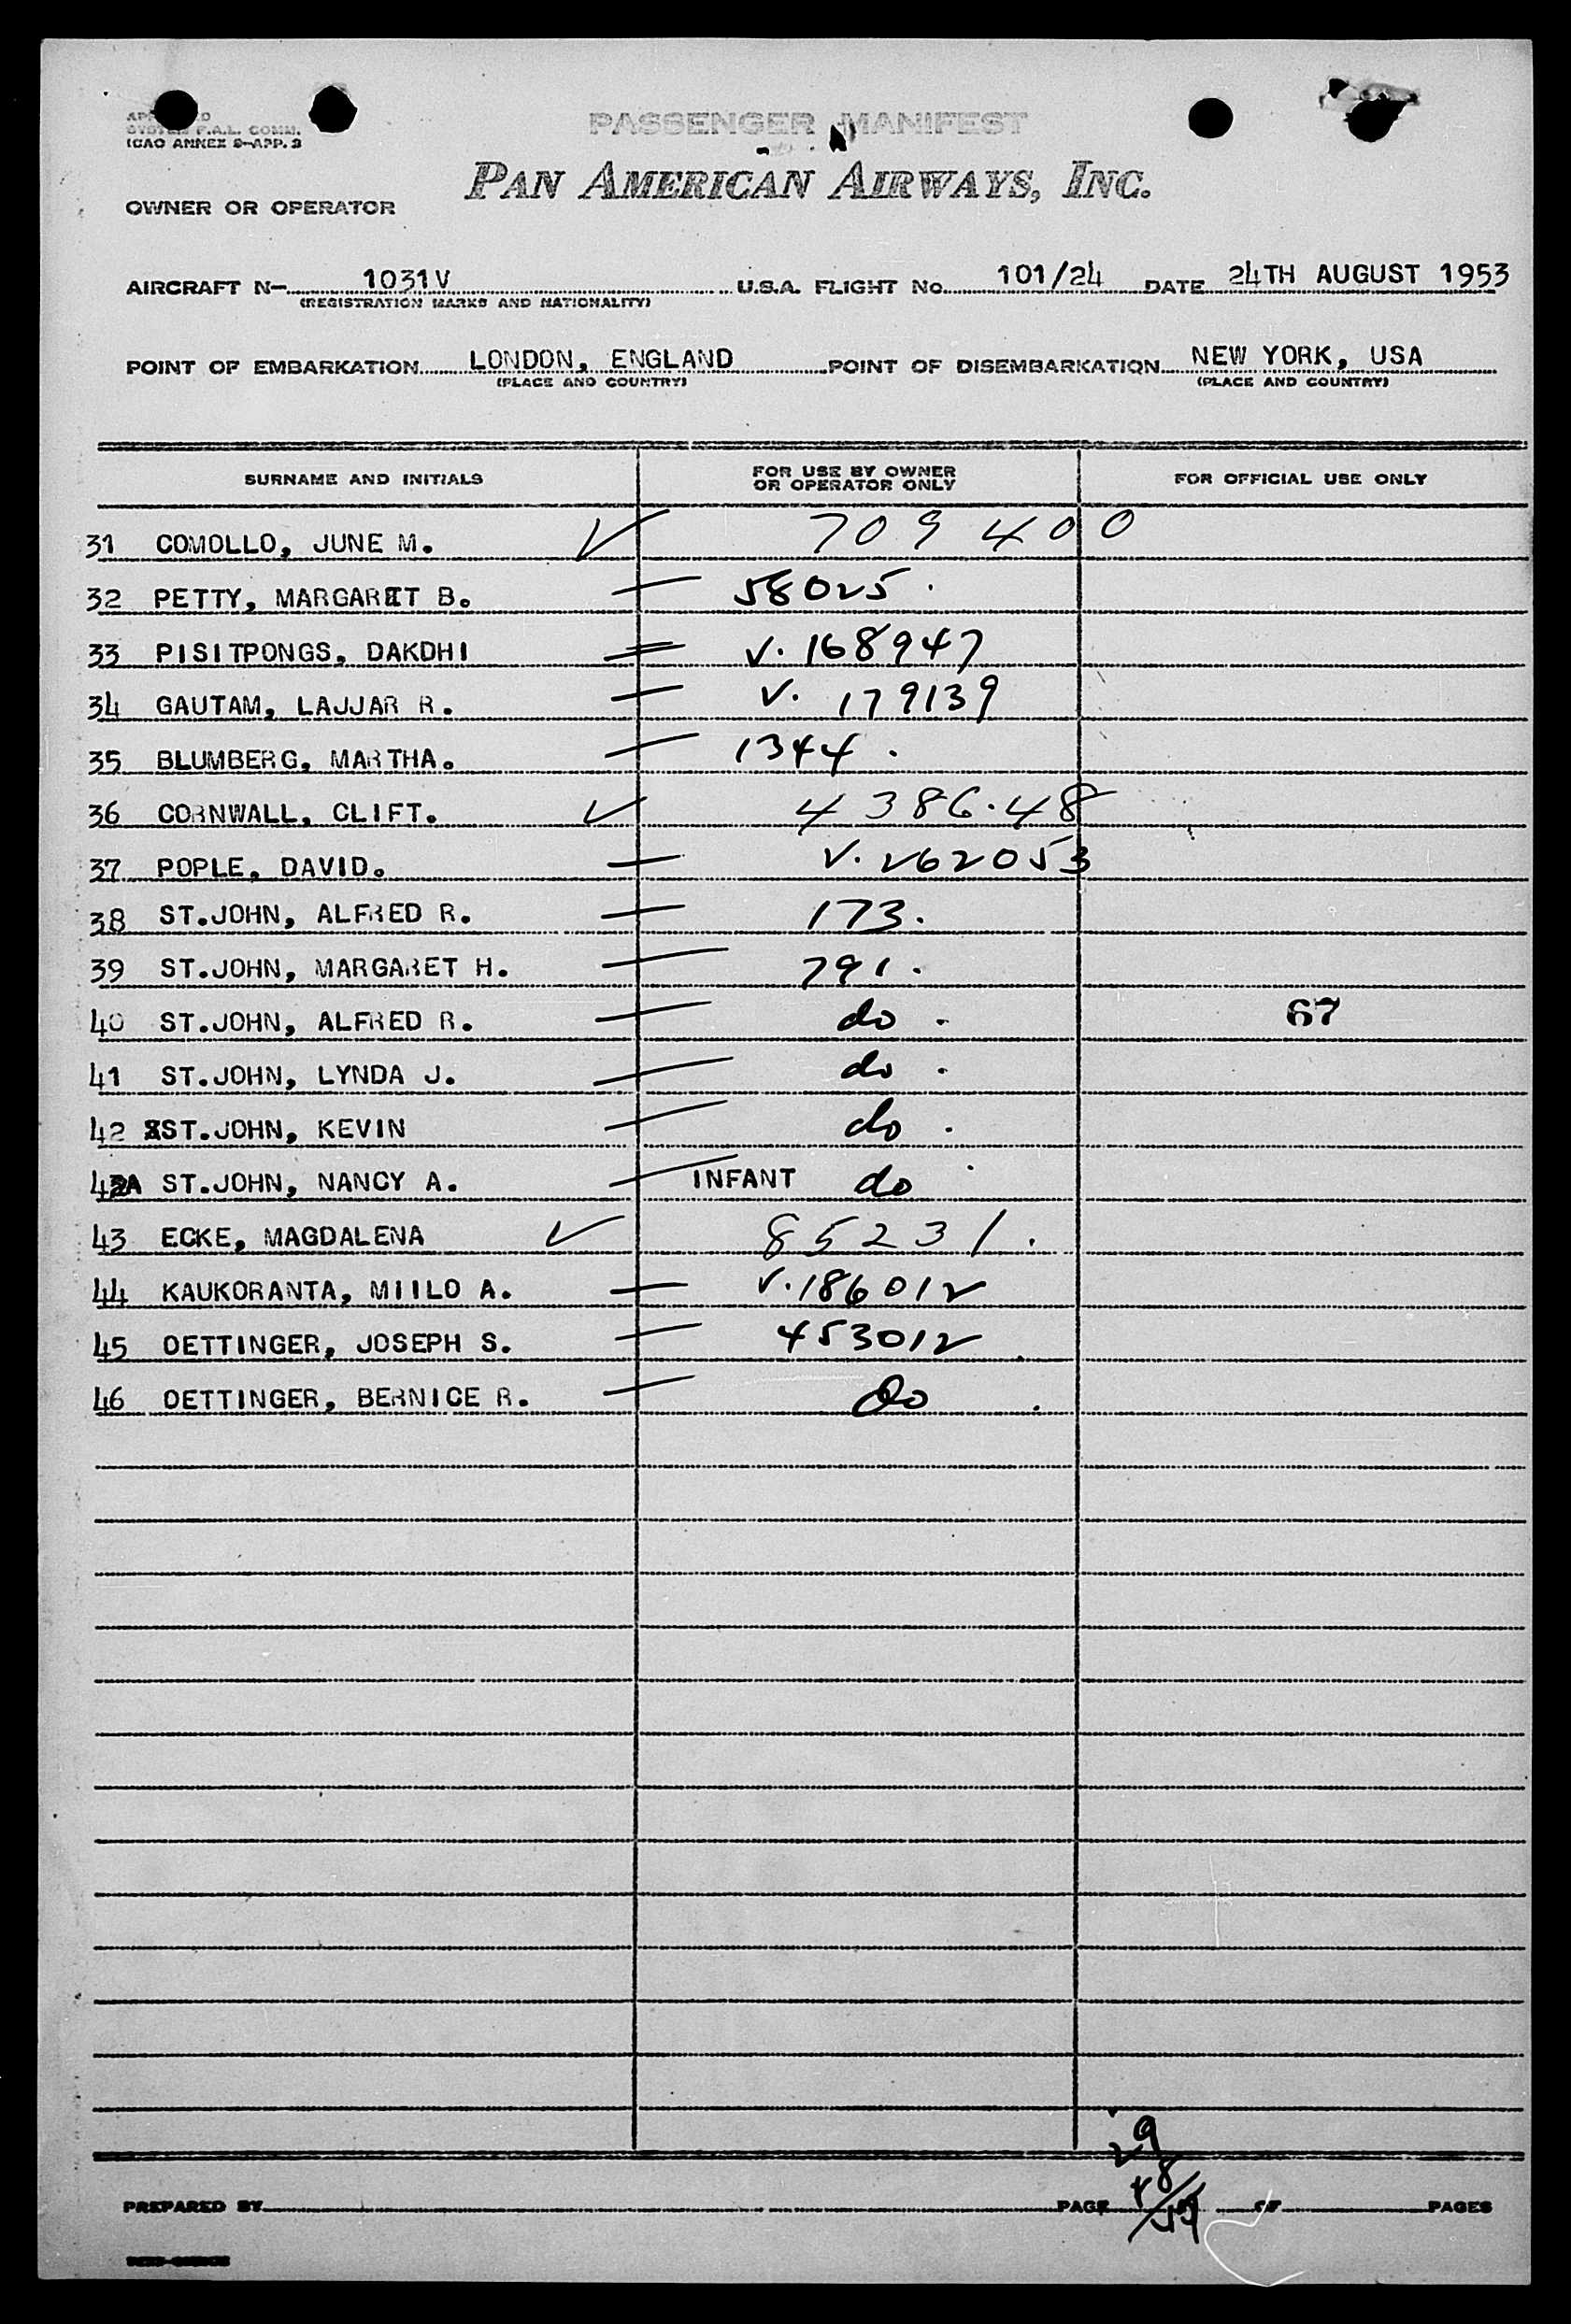 PASSENGER MANIFEST
SYSTEM F.A.L. COMM.
ICAO ANNEX 9-APP. 3
PAN AMERICAN AIRWAYS, INC.
OWNER OR OPERATOR
AIRCRAFT N- 1031V U.S.A. FLIGHT No. 101/24 DATE 24TH AUGUST 1953
(REGISTRATION MARKS AND NATIONALITY)
POINT OF EMBARKATION LONDON, ENGLAND POINT OF DISEMBARKATION NEW YORK, USA
(PLACE AND COUNTRY) (PLACE AND COUNTRY)
SURNAME AND INITIALS FOR USE BY OWNER OR OPERATOR ONLY FOR OFFICIAL USE ONLY
31 COMOLLO, JUNE M. ✓ 709400
32 PETTY, MARGARET B. — 58025.
33 PISITPONGS, DAKDHI — V. 168947
34 GAUTAM, LAJJAR R. — V. 179139
35 BLUMBERG, MARTHA. — 1344.
36 CORNWALL, CLIFT. ✓ 4386.48
37 POPLE, DAVID. — V. 262053
38 ST.JOHN, ALFRED R. — 173.
39 ST.JOHN, MARGARET H. — 791.
40 ST.JOHN, ALFRED R. — do. 67
41 ST.JOHN, LYNDA J. — do.
42 ST.JOHN, KEVIN — do.
42A ST.JOHN, NANCY A. — INFANT do
43 ECKE, MAGDALENA ✓ 85231.
44 KAUKORANTA, MIILO A. — V. 186012
45 OETTINGER, JOSEPH S. — 453012
46 OETTINGER, BERNICE R. — Do
29
PREPARED BY PAGE OF PAGES